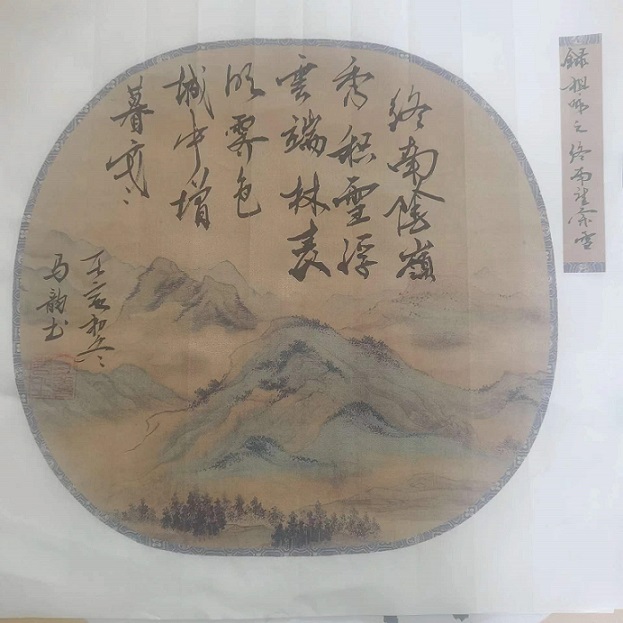 錄祖詠之終南望余雪
終南陰嶺
秀積雪浮
雲端林表
明霽色
城中增
暮寒
壬寅初冬
马韵书